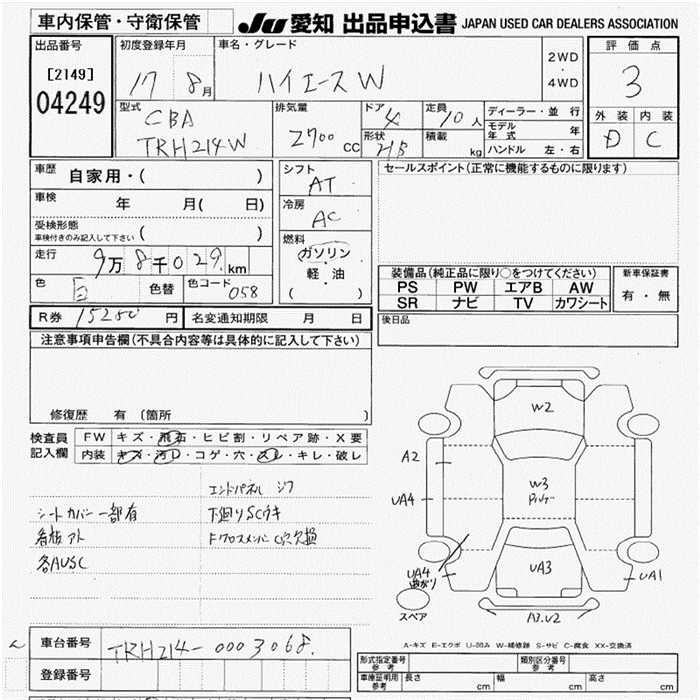 車内保管・守衛保管
JU 愛知 出品申込書 JAPAN USED CAR DEALERS ASSOCIATION
出品番号
[2149]
04249
初度登録年月
17 8月
車名・グレード
ハイエースW
2WD
・
4WD
評価点
3
外装 内装
D C
型式
CBA
TRH214W
排気量
2700 cc
ドア
4
形状
HB
定員
10人
積載
kg
ディーラー・並行
モデル年式 年
ハンドル 左・右
車歴
自家用・( )
車検
年 月( 日)
受検形態
車検付きのみ記入して下さい ( )
走行
9万8千029km
色
白
色替
色コード
058
シフト
AT
冷房
AC
燃料
ガソリン
・
軽・油
( )
セールスポイント(正常に機能するものに限ります)
装備品(純正品に限り○をつけてください)
PS PW エアB AW
SR ナビ TV カワシート
新車保証書
有・無
後日品
R券 15280 円
名変通知期限 月 日
注意事項申告欄(不具合内容等は具体的に記入して下さい)
修復歴 有(箇所 )
検査員
記入欄
FW キズ・飛石・ヒビ割・リペア跡・X要
内装 キズ・汚レ・コゲ・穴・スレ・キレ・破レ
エンドパネル
シートカバー一部有
下廻りSCサキ
看板アト
FクロスメンバーC穴欠損
各AUSC
W2
A2
W3
UA4
UA3
UA4
UA1
スペア
A3.U2
A-キズ E-エクボ U-凹み W-補修跡 S-サビ C-腐食 XX-交換済
車台番号
TRH214-0003068
登録番号
型式指定番号
参考
類別区分番号
参考
車庫証明用
参考
長さ cm 幅 cm 高さ cm